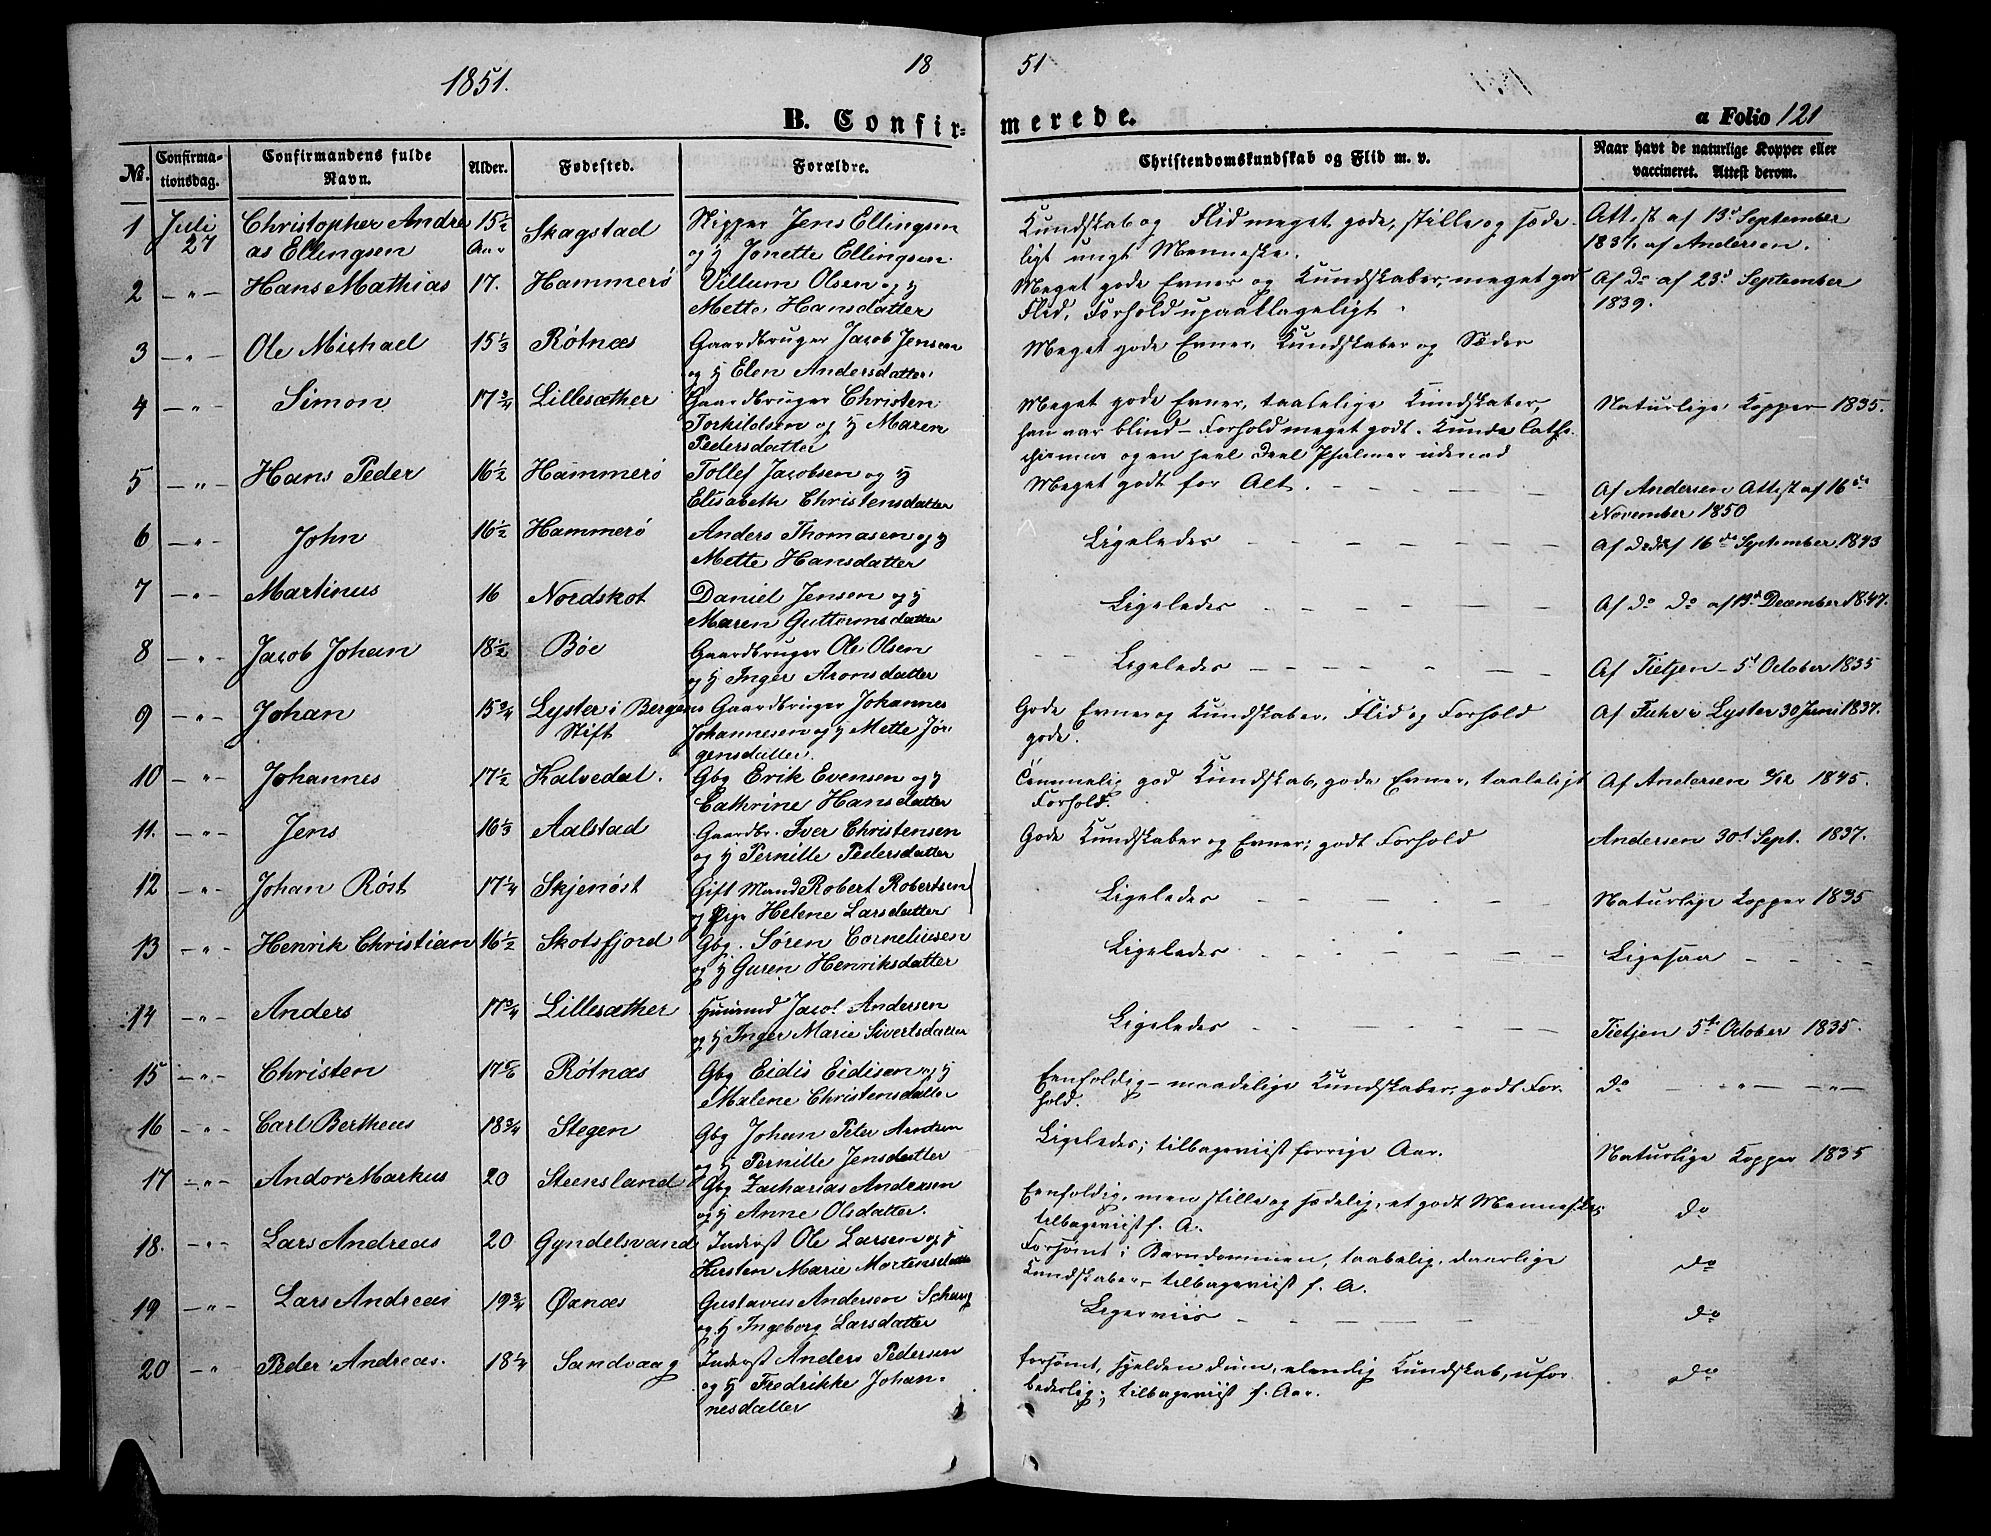 1851.
18
51
B. Confir-
merede.
a Folio 121
No.
Confirma-
tionsdag.
Confirmandens fulde
Navn.
Alder.
Fødested.
Forældre.
Christendomskundskab og Flid m. v.
Naar havt de naturlige Kopper eller
vaccineret. Attest derom.
1 Juli 27 Christopher Andre
as Ellingsen
15½ Aar
Skagstad
Skipper Jens Ellingsen
og H Jonette Ellingsen
Kundskab og Flid meget gode, stille og sæde-
ligt ungt Menneske.
Attest af 13d September
1837 af Andersen.
2 -"- Hans Mathias 17. Hammerö
Villum Olsen og H
Mette Hansdatter
Meget gode Evner og Kundskaber, meget god
Flid, Forhold upaaklageligt.
Af do af 23d September
1839.
3 -"- Ole Michael 15⅓ Rötnæs
Gaardbruger Jacob Jensen
og H Elen Andersdatter.
Meget gode Evner, Kundskaber og Sæder
4 -"- Simon 17¾ Lillesæther
Gaardbruger Christen
Torkildsen og H Maren
Pedersdatter
Meget gode Evner, taalelige Kundskaber,
han var blind - Forhold meget godt. Kunde Cathe-
chismus og en heel Deel Psalmer udenad
Naturlige Kopper 1835.
5 -"- Hans Peder 16½ Hammerö
Tollef Jacobsen og H
Elisabeth Christensdatter
Meget godt for Alt.
Af Andersen Attest af 16de
November 1850
6 -"- John 16½ Hammerö
Anders Thomasen og H
Mette Hansdatter
Ligeledes
Af do af 16de September 1843
7 -"- Martinus 16 Nordskot
Daniel Jensen og H
Maren Guttormsdatter
Ligeledes
Af do do af 13d December 1847.
8 -"- Jacob Johan 18½ Böe
Gaardbruger Ole Olsen
og H Inger Aronsdatter
Ligeledes
Af Tietjen - 5t October 1835
9 -"- Johan 15¾ Lyster i Bergens
Stift
Gaardbruger Johannes
Johannesen og H Mette Jör-
gensdatter.
Gode Evner og Kundskaber, Flid og Forhold
gode.
Af Fuhr i Lyster 30 Juni 1837.
10 -"- Johannes 17½ Kalvedal.
Gbg Erik Evensen og H
Cathrine Hansdatter
Temmelig god Kundskab, gode Evner, taaleligt
Forhold.
Af Andersen 1845.
11. -"- Jens 16⅓ Aalstad
Gaardbr. Iver Christensen
og H Pernille Pedersdatter
Gode Kundskaber og Evner; godt Forhold
Andersen 30t Sept. 1837.
12 -"- Johan Röst 17¼ Skjenöst
Gift Mand Robert Robertsen
og Pige Helene Larsdatter
Ligeledes
Naturlige Kopper 1835
13 -"- Henrik Christian 16½ Skotsfjord
Gbg. Sören Corneliusen
og H Guren Henriksdatter
Ligeledes
Ligesaa
14 -"- Anders 17¾ Lillesæther
Huusmd Jacob Andersen
og H Inger Marie Sivertsdatter
Ligeledes
Tietjen 5te October 1835.
15 -"- Christen Rötnæs
Gbg Eidis Eidisen og H
Malene Christensdatter
Eenfoldig - maadelige Kundskaber; godt For-
hold.
do -"- -"-
16 -"- Carl Bertheus 18¾ Stegen
Gbg Johan Peter
og H Pernille Jensdatter
Ligeledes; tilbageviist forrige Aar.
Naturlige Kopper 1835
17 -"- Andor Markus 20 Steensland
Gbg Zacharias Andreasen
og H Anne Olsdatter.
Eenfoldig, men stille og sædelig, et godt Menneske;
tilbageviist f. A.
do
18. -"- Lars Andreas 20 Gyndelsvand
Inderst Ole Larsen og H
Kirsten Marie Mortensdatter
Forsömt i Barndommen, taabelig, daarlige
Kundskaber, tilbageviist f. A.
do
19 -"- Lars Andreas 19¾ Öxnæs
Gustavus Andersen
og H Ingeborg Larsdatter
Ligerviis
do
20 -"- Peder Andreas. 18¼ Sandvaag
Inderst Anders Pedersen
og H Fredrikke Johan-
nesdatter
forsömt, sjelden dum, elendig Kundskab, ufor-
bederlig; tilbageviist f. Aar.
do